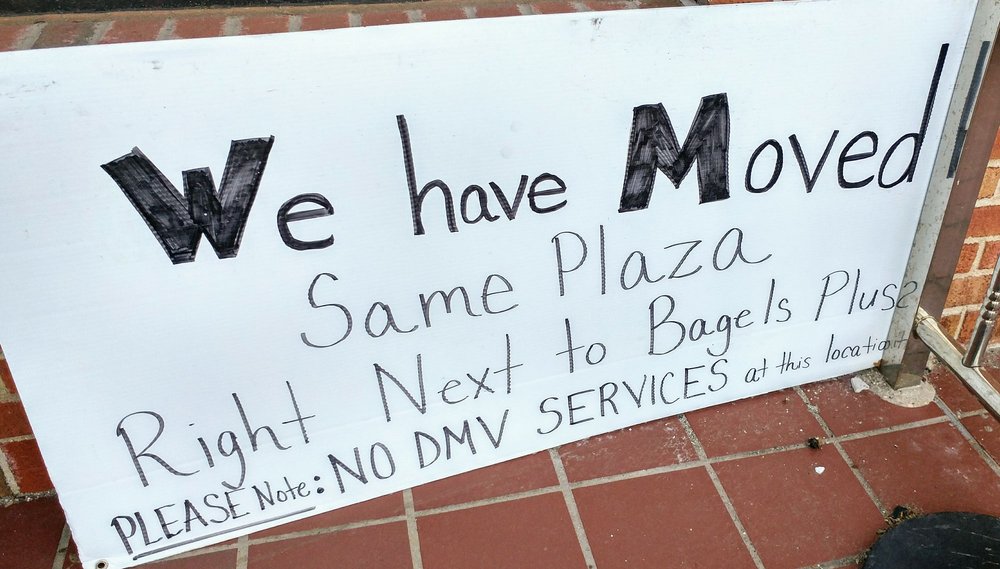 We have Moved
Same Plaza
Right Next to Bagels Plus
PLEASE Note: NO DMV SERVICES at this location